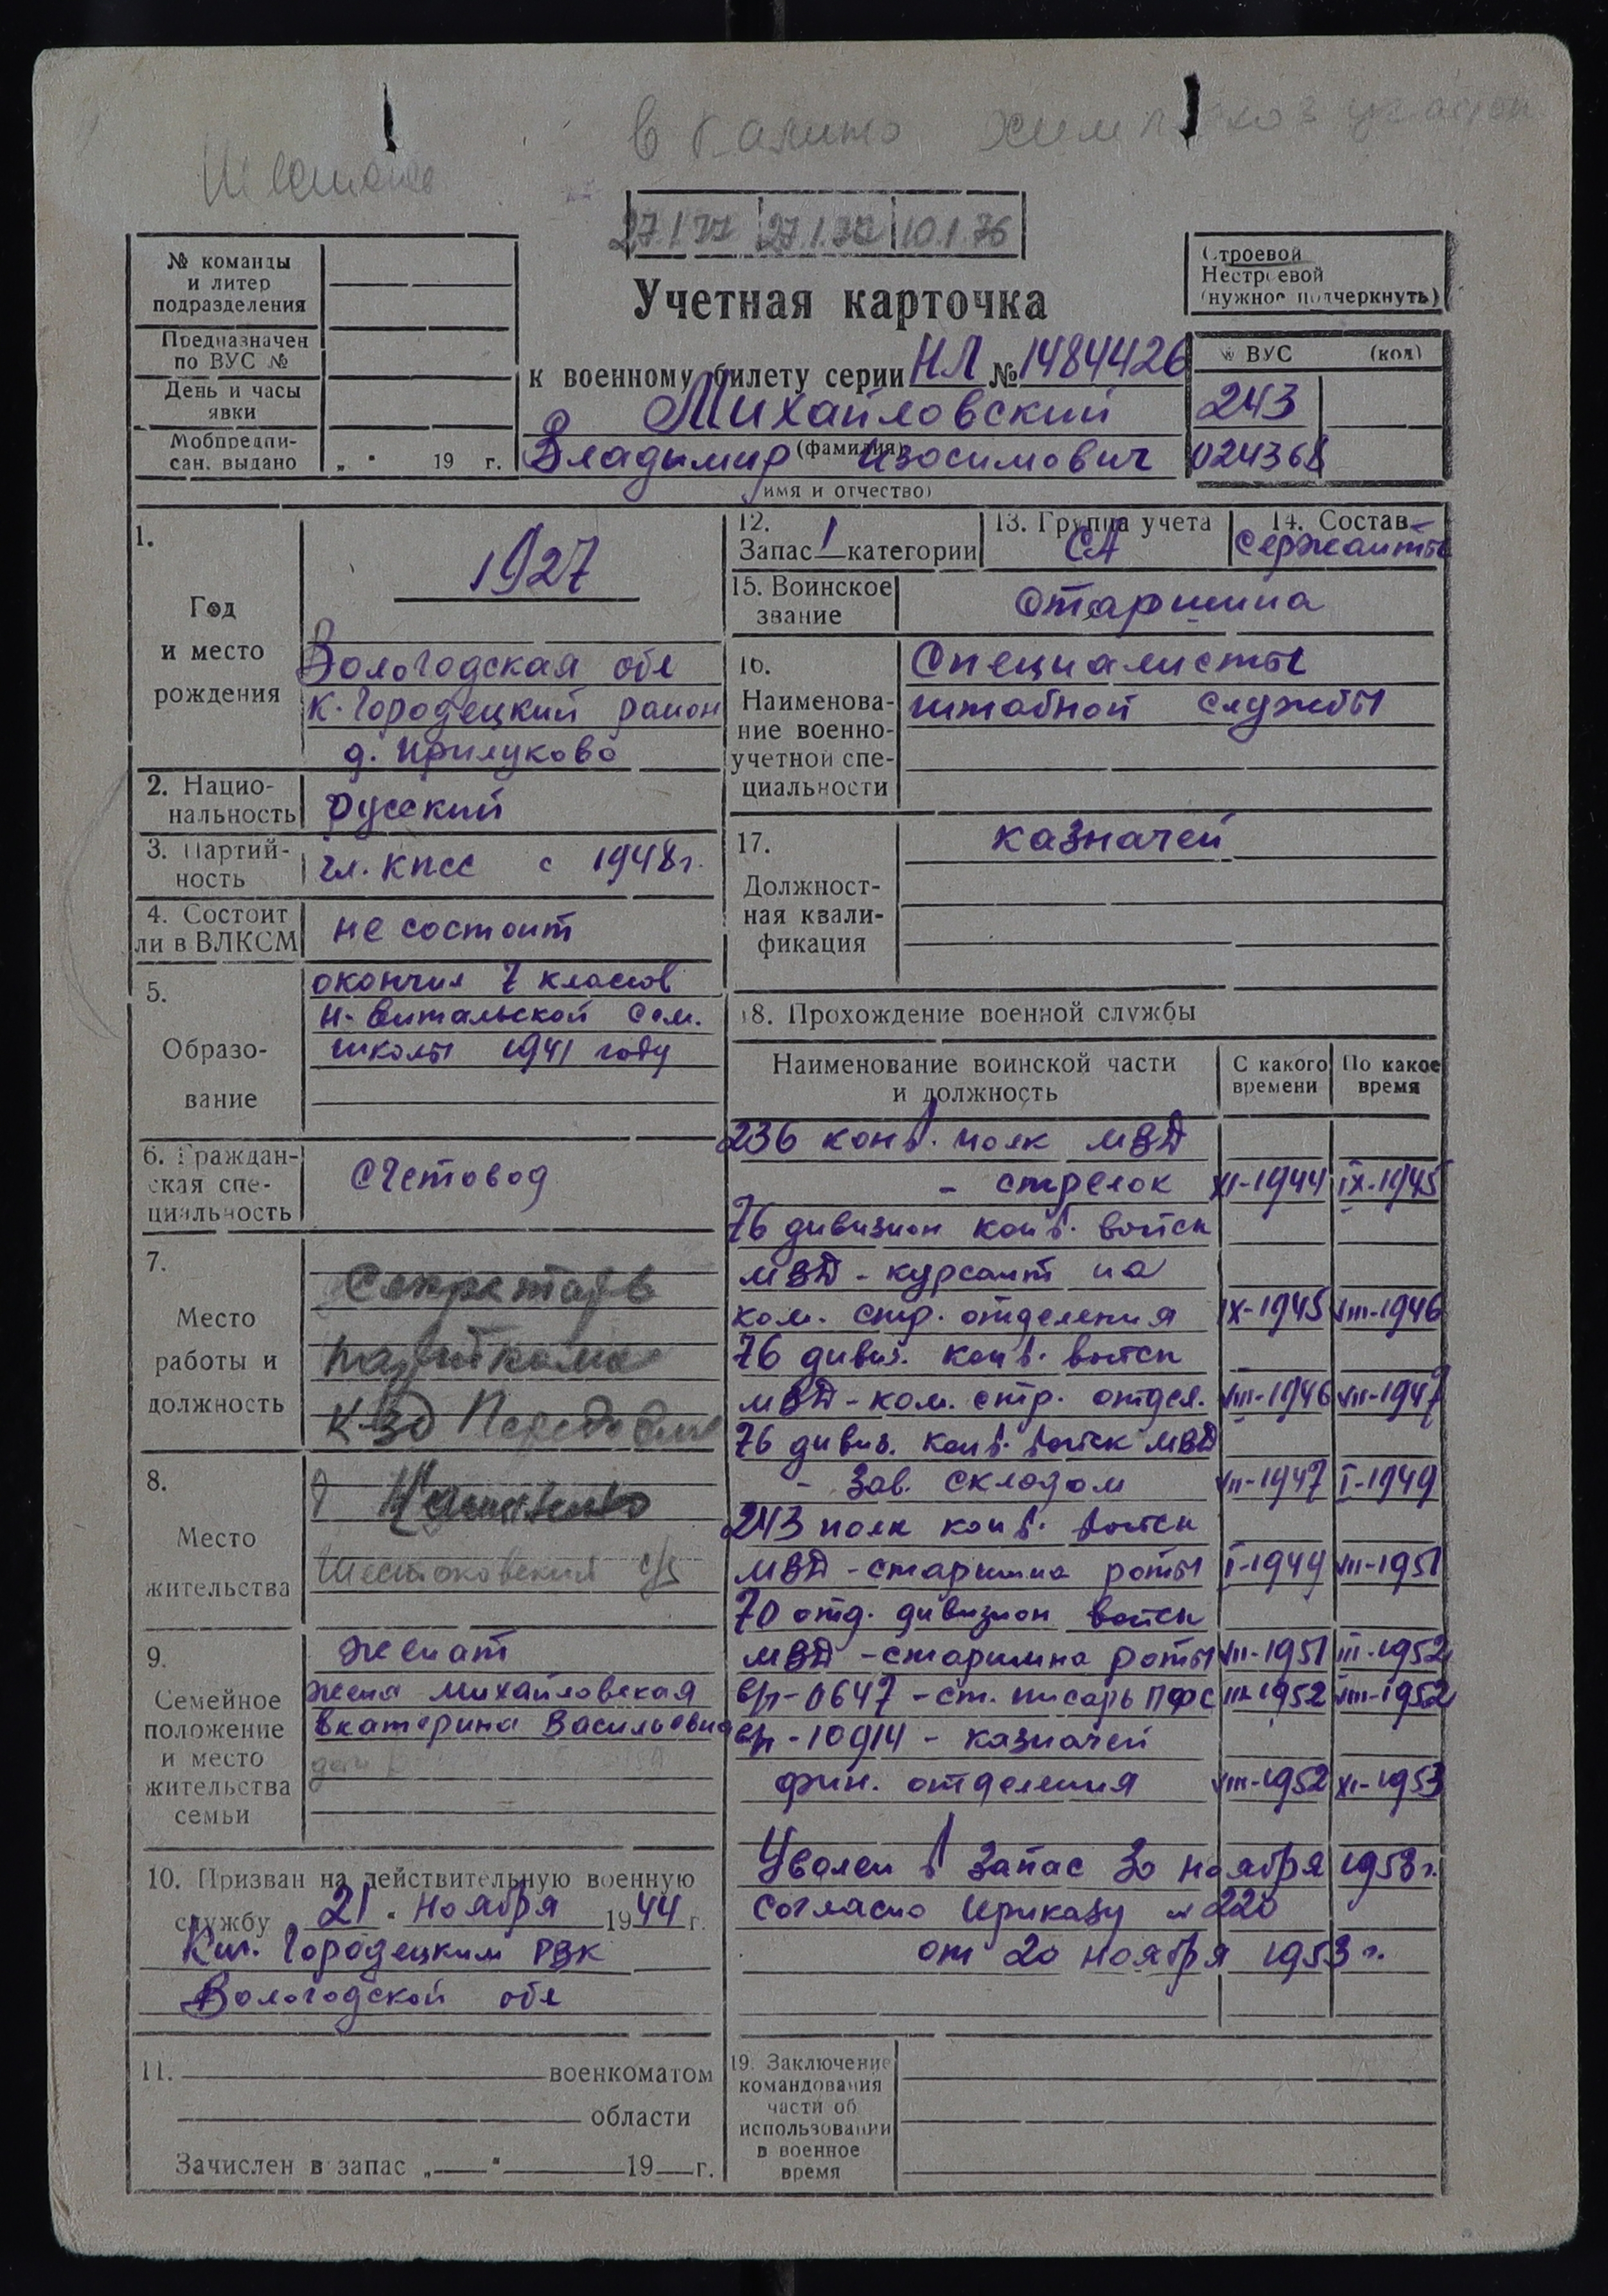 27.1.77 27.1.72 10.1.76
№ команды
и литер
подразделения
Предназначен
по ВУС №
День и часы
явки
Мобпредпи-
сан. выдано „ " 19 г.
Учетная карточка
к военному билету серии НЛ № 1484426
Михайловский
(фамилия)
Владимир Изосимович
(имя и отчество)
Строевой
Нестроевой
(нужное подчеркнуть)
№ ВУС (код)
243
024368
1.
Год
и место
рождения
1927
Вологодская обл
К-Городецкий район
д. Прилуково
2. Нацио-
нальность русский
3. Партий-
ность чл. КПСС с 1948г.
4. Состоит
ли в ВЛКСМ не состоит
5.
Образо-
вание
окончил 7 классов
школы 1941 году
6. Граждан-
ская спе-
циальность
счетовод
7.
Место
работы и
должность
Секретарь
парткома
К-зд
8.
Место
жительства
Шестаковский с/с
9.
Семейное
положение
и место
жительства
семьи
женат
жена Михайловская
Екатерина Васильевна
10. Призван на действительную военную
службу „ 21 " ноября 1944 г.
Кич. Городецким РВК
Вологодской обл
11. военкоматом
области
Зачислен в запас „ " 19 г.
12.
Запас 1 категории
13. Группа учета
СА
14. Состав
Сержанты
15. Воинское
звание
старшина
16.
Наименова-
ние военно-
учетной спе-
циальности
Специалисты
штабной службы
17.
Должност-
ная квали-
фикация
казначей
18. Прохождение военной службы
Наименование воинской части
и должность
С какого
времени
По какое
время
236 конв. полк МВД
- стрелок XI-1944 IX-1945
76 дивизион конв. войск
МВД - курсант на
ком. стр. отделения IX-1945 VIII-1946
76 дивиз. конв. войск
МВД - ком. стр. отдел. VIII-1946 VII-1947
76 дивиз. конв. войск МВД
- Зав. складом VII-1947 I-1949
243 полк конв. войск
МВД - старшина роты I-1949 VII-1951
70 отд. дивизион войск
МВД - старшина роты VII-1951 III-1952
в/ч-0647 - ст. писарь ПФС III-1952 VIII-1952
в/ч-10914 - казначей
фин. отделения VIII-1952 XI-1953
Уволен в запас 30 ноября 1953 г.
согласно приказу № 220
от 20 ноября 1953 г.
19. Заключение
командования
части об
использовании
в военное
время